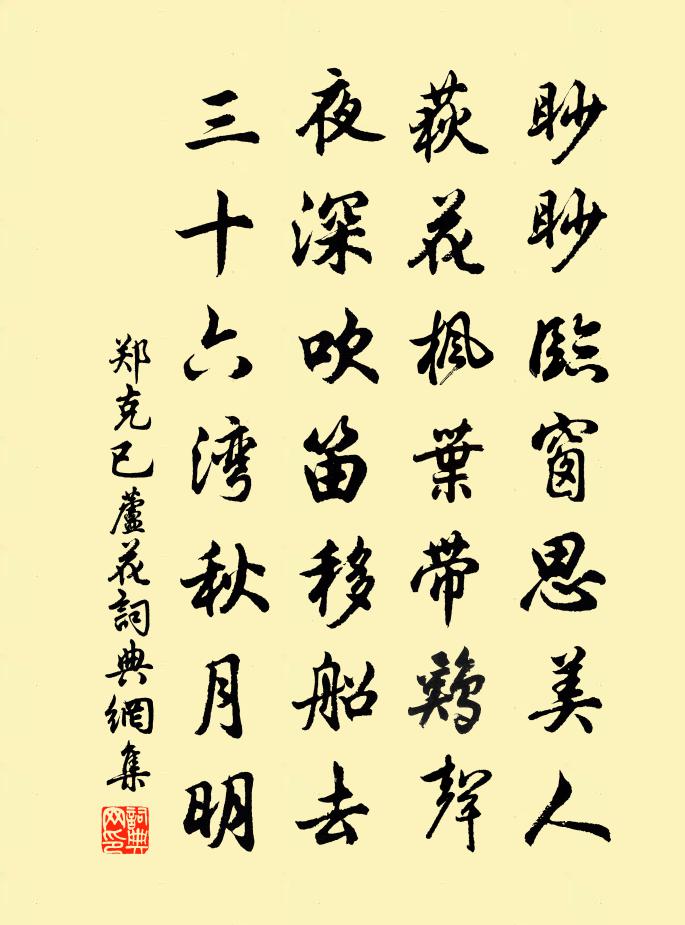 眇眇臨窗思美人
荻花楓葉带鷄聲
夜深吹笛移船去
三十六湾秋月明
郑克已蘆花詞典網集
詞典網印